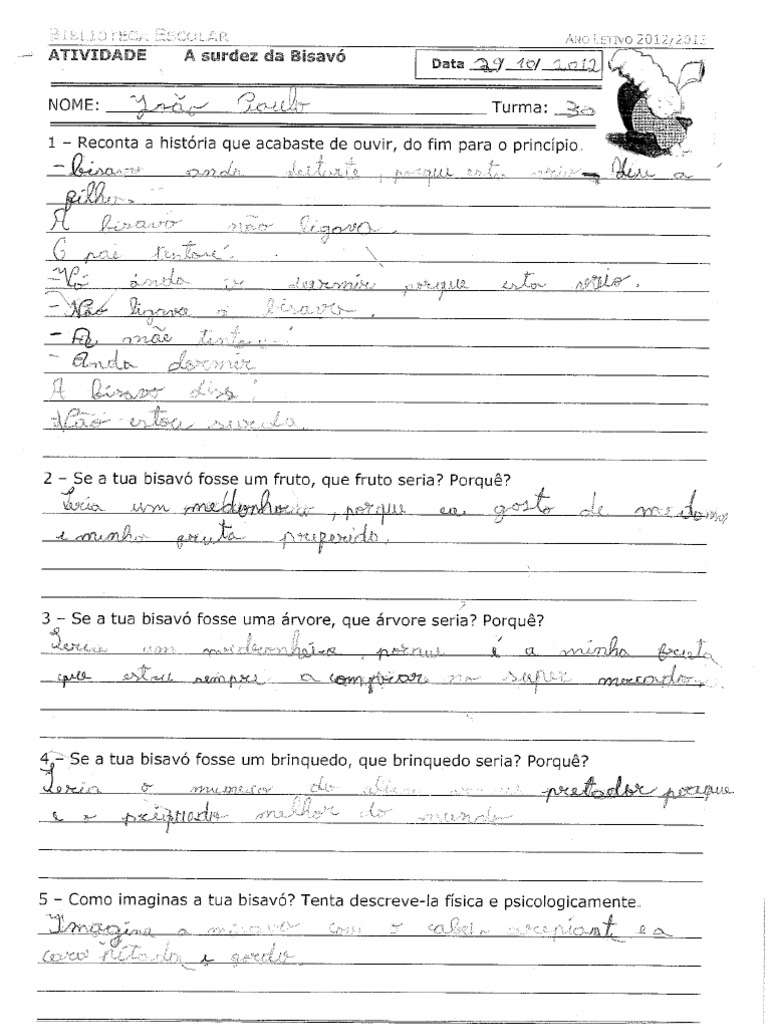 BIBLIOTECA ESCOLAR ANO LETIVO 2012/2013
ATIVIDADE A surdez da Bisavó Data 29/10/2012
NOME: João Paulo Turma: 3º
1 – Reconta a história que acabaste de ouvir, do fim para o princípio.
- bisavo anda deitarte, porque esta – Deu a
pilha.
A bisavó não ligava.
O pai
- Vó ánda ir dormir porque esta
- Não ligava a bisavo.
- A mãe
- Anda dormir
A bisavo diss:
Não estou surda.
2 – Se a tua bisavó fosse um fruto, que fruto seria? Porquê?
Seria um porque eu gosto de
e minha fruta preferido.
3 – Se a tua bisavó fosse uma árvore, que árvore seria? Porquê?
Seria um porque é a minha fruta
que estou sempre a comprar no super mercado.
4 – Se a tua bisavó fosse um brinquedo, que brinquedo seria? Porquê?
Seria o do pretador porque
e o melhor do mundo
5 – Como imaginas a tua bisavó? Tenta descreve-la física e psicologicamente.
Imagino a com o e a
cara e gorda.